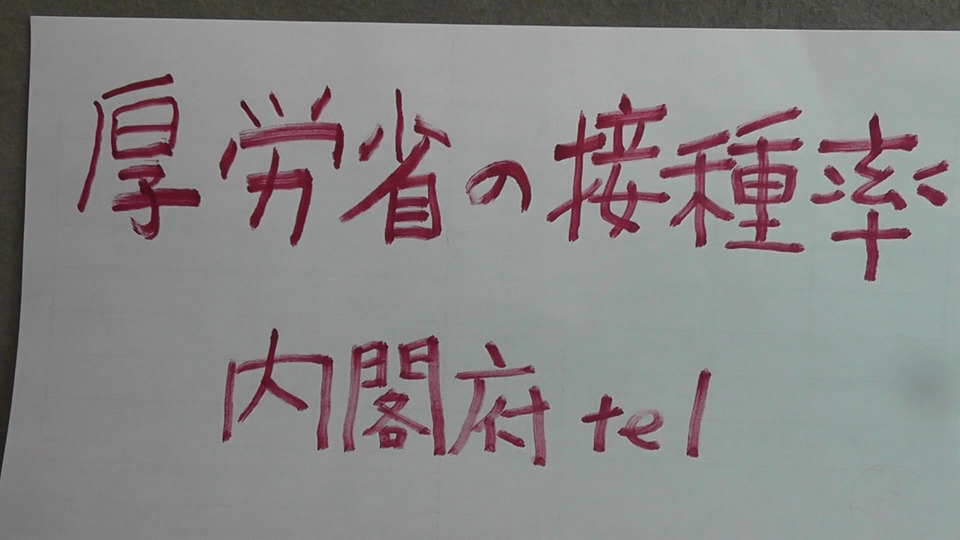 厚労省の接種率
内閣府tel